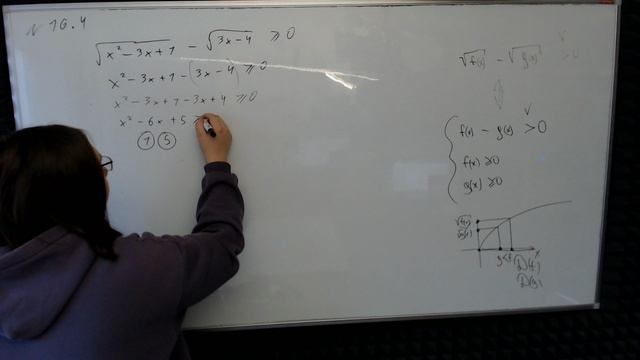 № 16.4
√(x² - 3x + 1) - √(3x - 4) ≥ 0
x² - 3x + 1 - (3x - 4) ≥ 0
x² - 3x + 1 - 3x + 4 ≥ 0
x² - 6x + 5 ≥
① ⑤
√f(x) - √g(x) > 0
f(x) - g(x) > 0
f(x) ≥ 0
g(x) ≥ 0
√f(x)
√g(x)
g < f x
D(f)
D(g)